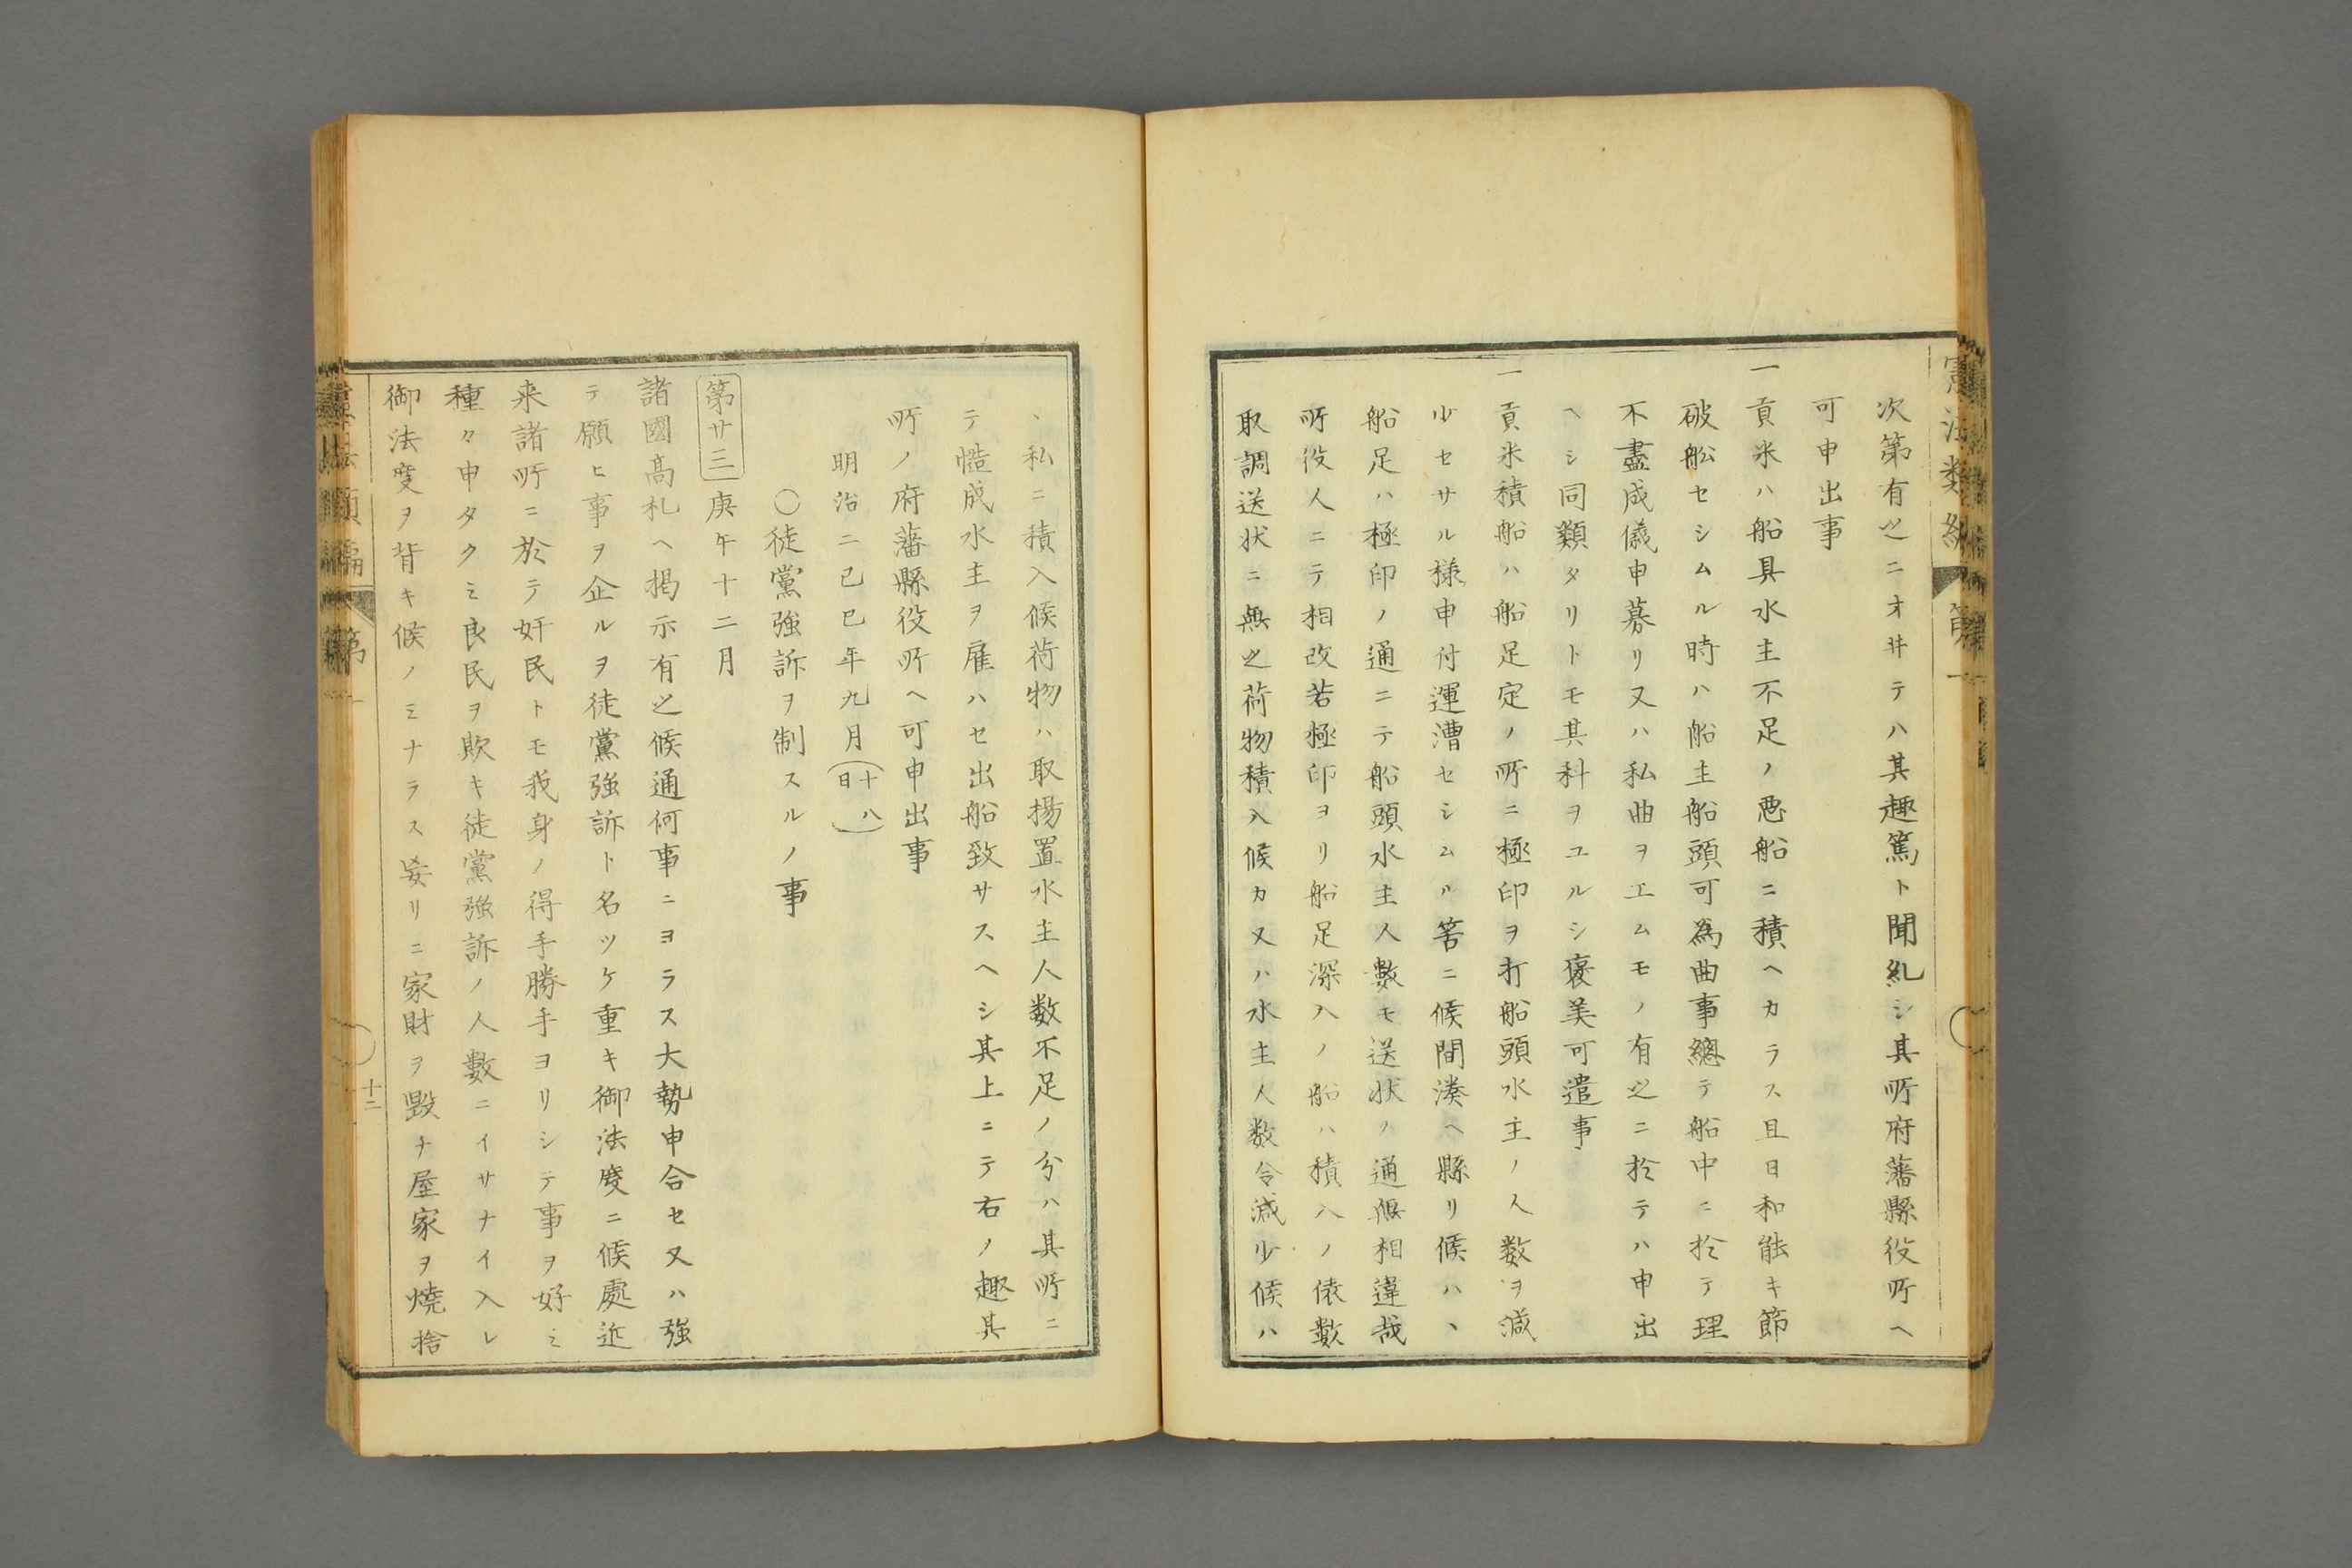 憲法類編 第一
次第有之ニオヰテハ其趣篤ト聞糺シ其所府藩縣役所ヘ
可申出事
一貢米ハ船具水主不足ノ悪船ニ積ヘカラス且日和能キ節
破船セシムル時ハ船主船頭可為曲事總テ船中ニ於テ理
不盡成儀申募リ又ハ私曲ヲエムモノ有之ニ於テハ申出
ヘシ同類タリトモ其科ヲユルシ褒美可遣事
一貢米積船ハ船足定ノ所ニ極印ヲ打船頭水主ノ人数ヲ減
少セサル様申付運漕セシムル筈ニ候間湊ヘ縣リ候ハヽ
船足ハ極印ノ通ニテ船頭水主人數モ送状ノ通無相違哉
所役人ニテ相改若極印ヨリ船足深入ノ船ハ積入ノ俵數
取調送状ニ無之荷物積入候カ又ハ水主人数令減少候ハ
ヽ私ニ積入候荷物ハ取揚置水主人数不足ノ分ハ其所ニ
テ慥成水主ヲ雇ハセ出船致サスヘシ其上ニテ右ノ趣其
所ノ府藩縣役所ヘ可申出事
明治二己巳年九月(十八日)
○徒黨強訴ヲ制スルノ事
第廿三 庚午十二月
諸國高札ヘ掲示有之候通何事ニヨラス大勢申合セ又ハ強
テ願ヒ事ヲ企ルヲ徒黨強訴ト名ツケ重キ御法度ニ候處近
来諸所ニ於テ奸民トモ我身ノ得手勝手ヨリシテ事ヲ好ミ
種々申タクミ良民ヲ欺キ徒黨強訴ノ人數ニイサナイ入レ
御法度ヲ背キ候ノミナラス妄リニ家財ヲ毀チ屋家ヲ焼捨
憲法類編 第一
十二